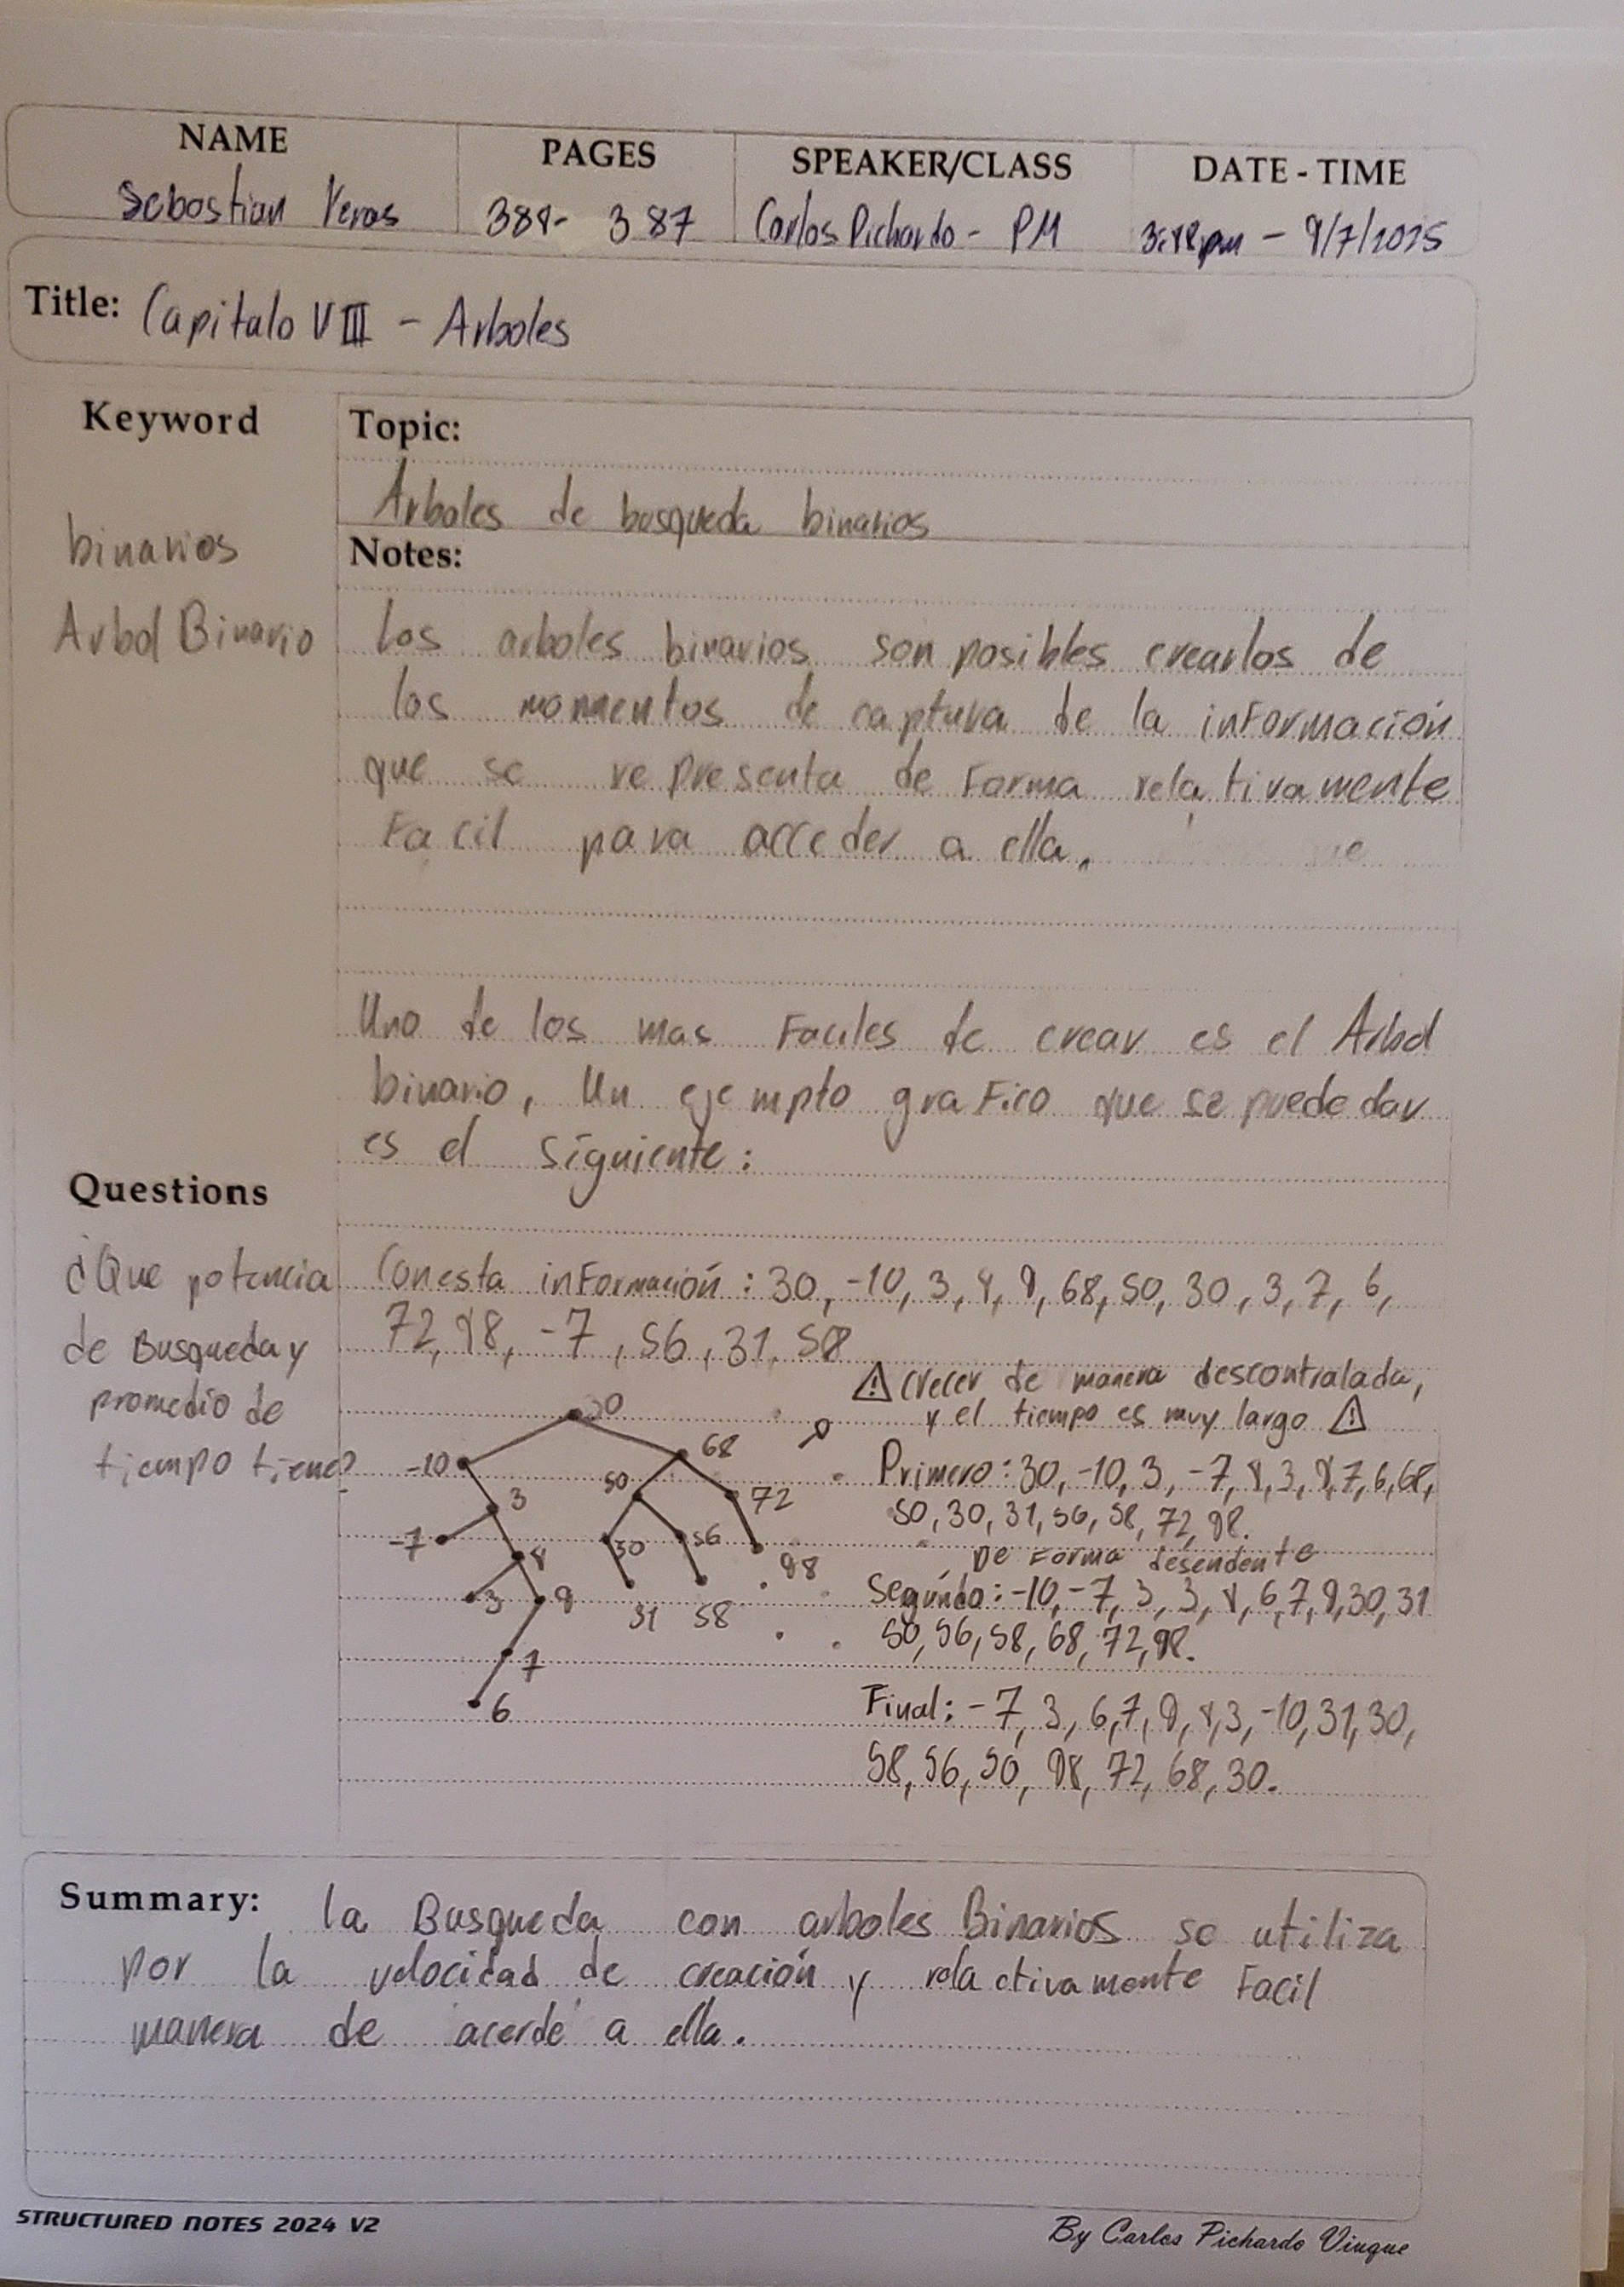 NAME
Sebastian Veras
PAGES
384- 387
SPEAKER/CLASS
Carlos Pichardo - PM
DATE - TIME
3:48pm - 9/7/2025
Title: Capitulo VIII - Arboles
Keyword
binarios
Arbol Binario
Topic:
Arboles de busqueda binarios
Notes:
Los arboles binarios son posibles crearlos de
los momentos de captura de la información
que se representa de Forma relativamente
Facil para acceder a ella.
Uno de los mas Faciles de crear es el Arbol
binario, Un ejemplo graFico que se puede dar
es el siguiente:
Questions
¿Que potencia
de Busqueda y
promedio de
tiempo tiene?
Con esta inFormación: 30, -10, 3, 4, 9, 68, 50, 30, 3, 7, 6,
72, 98, -7, 56, 31, 58
⚠ crecer de manera descontralada,
y el tiempo es muy largo ⚠
30
-10
68
3
50
72
-7
4
30
56
98
3
9
31
58
7
6
Primero: 30, -10, 3, -7, 4, 3, 9, 7, 6, 68,
50, 30, 31, 56, 58, 72, 98.
De Forma desendente
Segundo: -10, -7, 3, 3, 4, 6, 7, 9, 30, 31
50, 56, 58, 68, 72, 98.
Final: -7, 3, 6, 7, 9, 4, 3, -10, 31, 30,
58, 56, 50, 98, 72, 68, 30.
Summary: la Busqueda con arboles Binarios se utiliza
por la velocidad de creación y relactivamente Facil
manera de acerde a ella.
STRUCTURED NOTES 2024 V2
By Carlos Pichardo Viuque